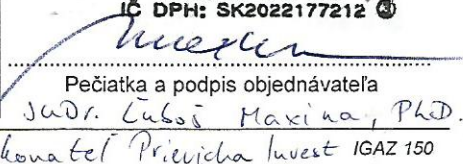 IČ DPH: SK2022177212 ③
Pečiatka a podpis objednávateľa
JUDr. Ľuboš Maxina, PhD.
konateľ Prievidza Invest IGAZ 150